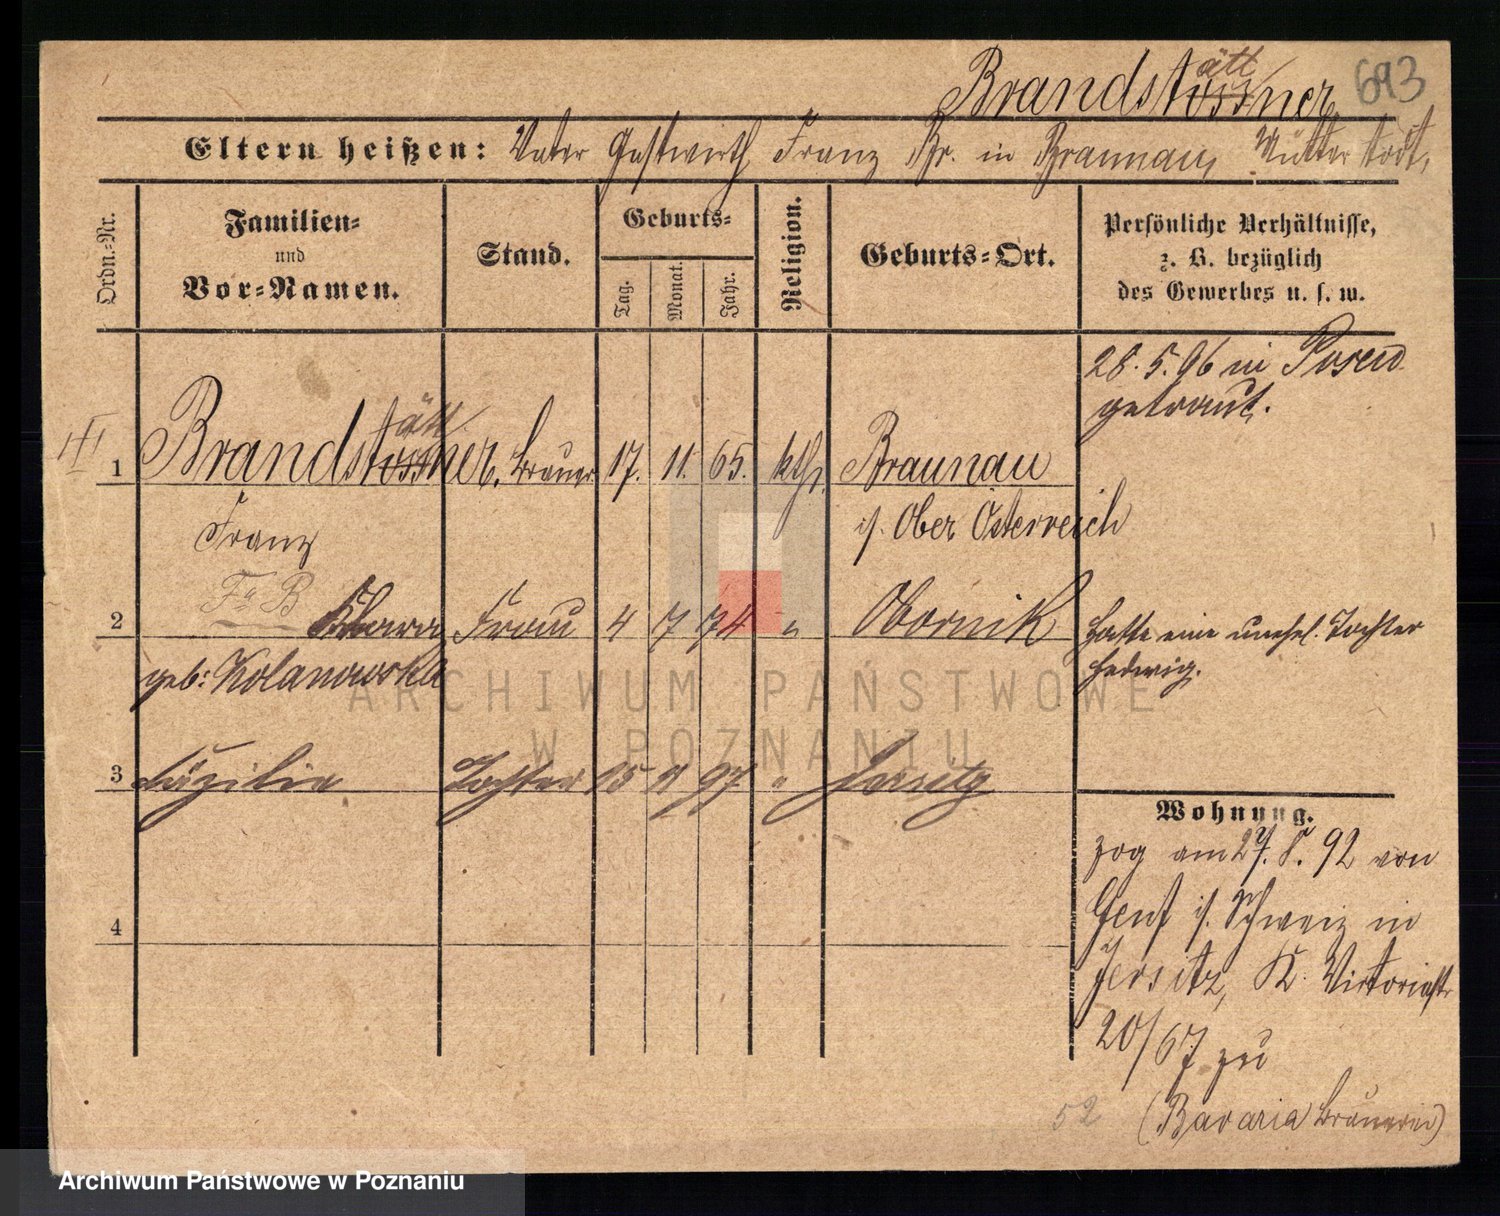 Brandstossner
ätt
693
Eltern heißen: Vater Gastwirth Franz Br. in Braunau, Mutter todt,
Ordn.-Nr.
Familien-
und
Vor-Namen.
Stand.
Geburts-
Tag.
Monat.
Jahr.
Religion.
Geburts-Ort.
Persönliche Verhältnisse,
z. B. bezüglich
des Gewerbes u. s. w.
28.5.96 in Posen
getraut.
ätt
1 Brandstossner, Brauer 17. 11. 65. kth. Braunau
Franz
i/ Ober Österreich
2 Klara Frau 4 7 74 " Obornik
geb: Kolanowska
hatte eine unehel. Tochter
Hedwig.
3 Cäzilie Tochter 15 11 97 " Jersitz
4
Wohnung.
zog am 27. 8. 92 von
Genf i/ Schweiz in
Jersitz, K. Victoriastr
20/67 zu
(Bavaria Brauerei)
52
ARCHIWUM PAŃSTWOWE
W POZNANIU
Archiwum Państwowe w Poznaniu